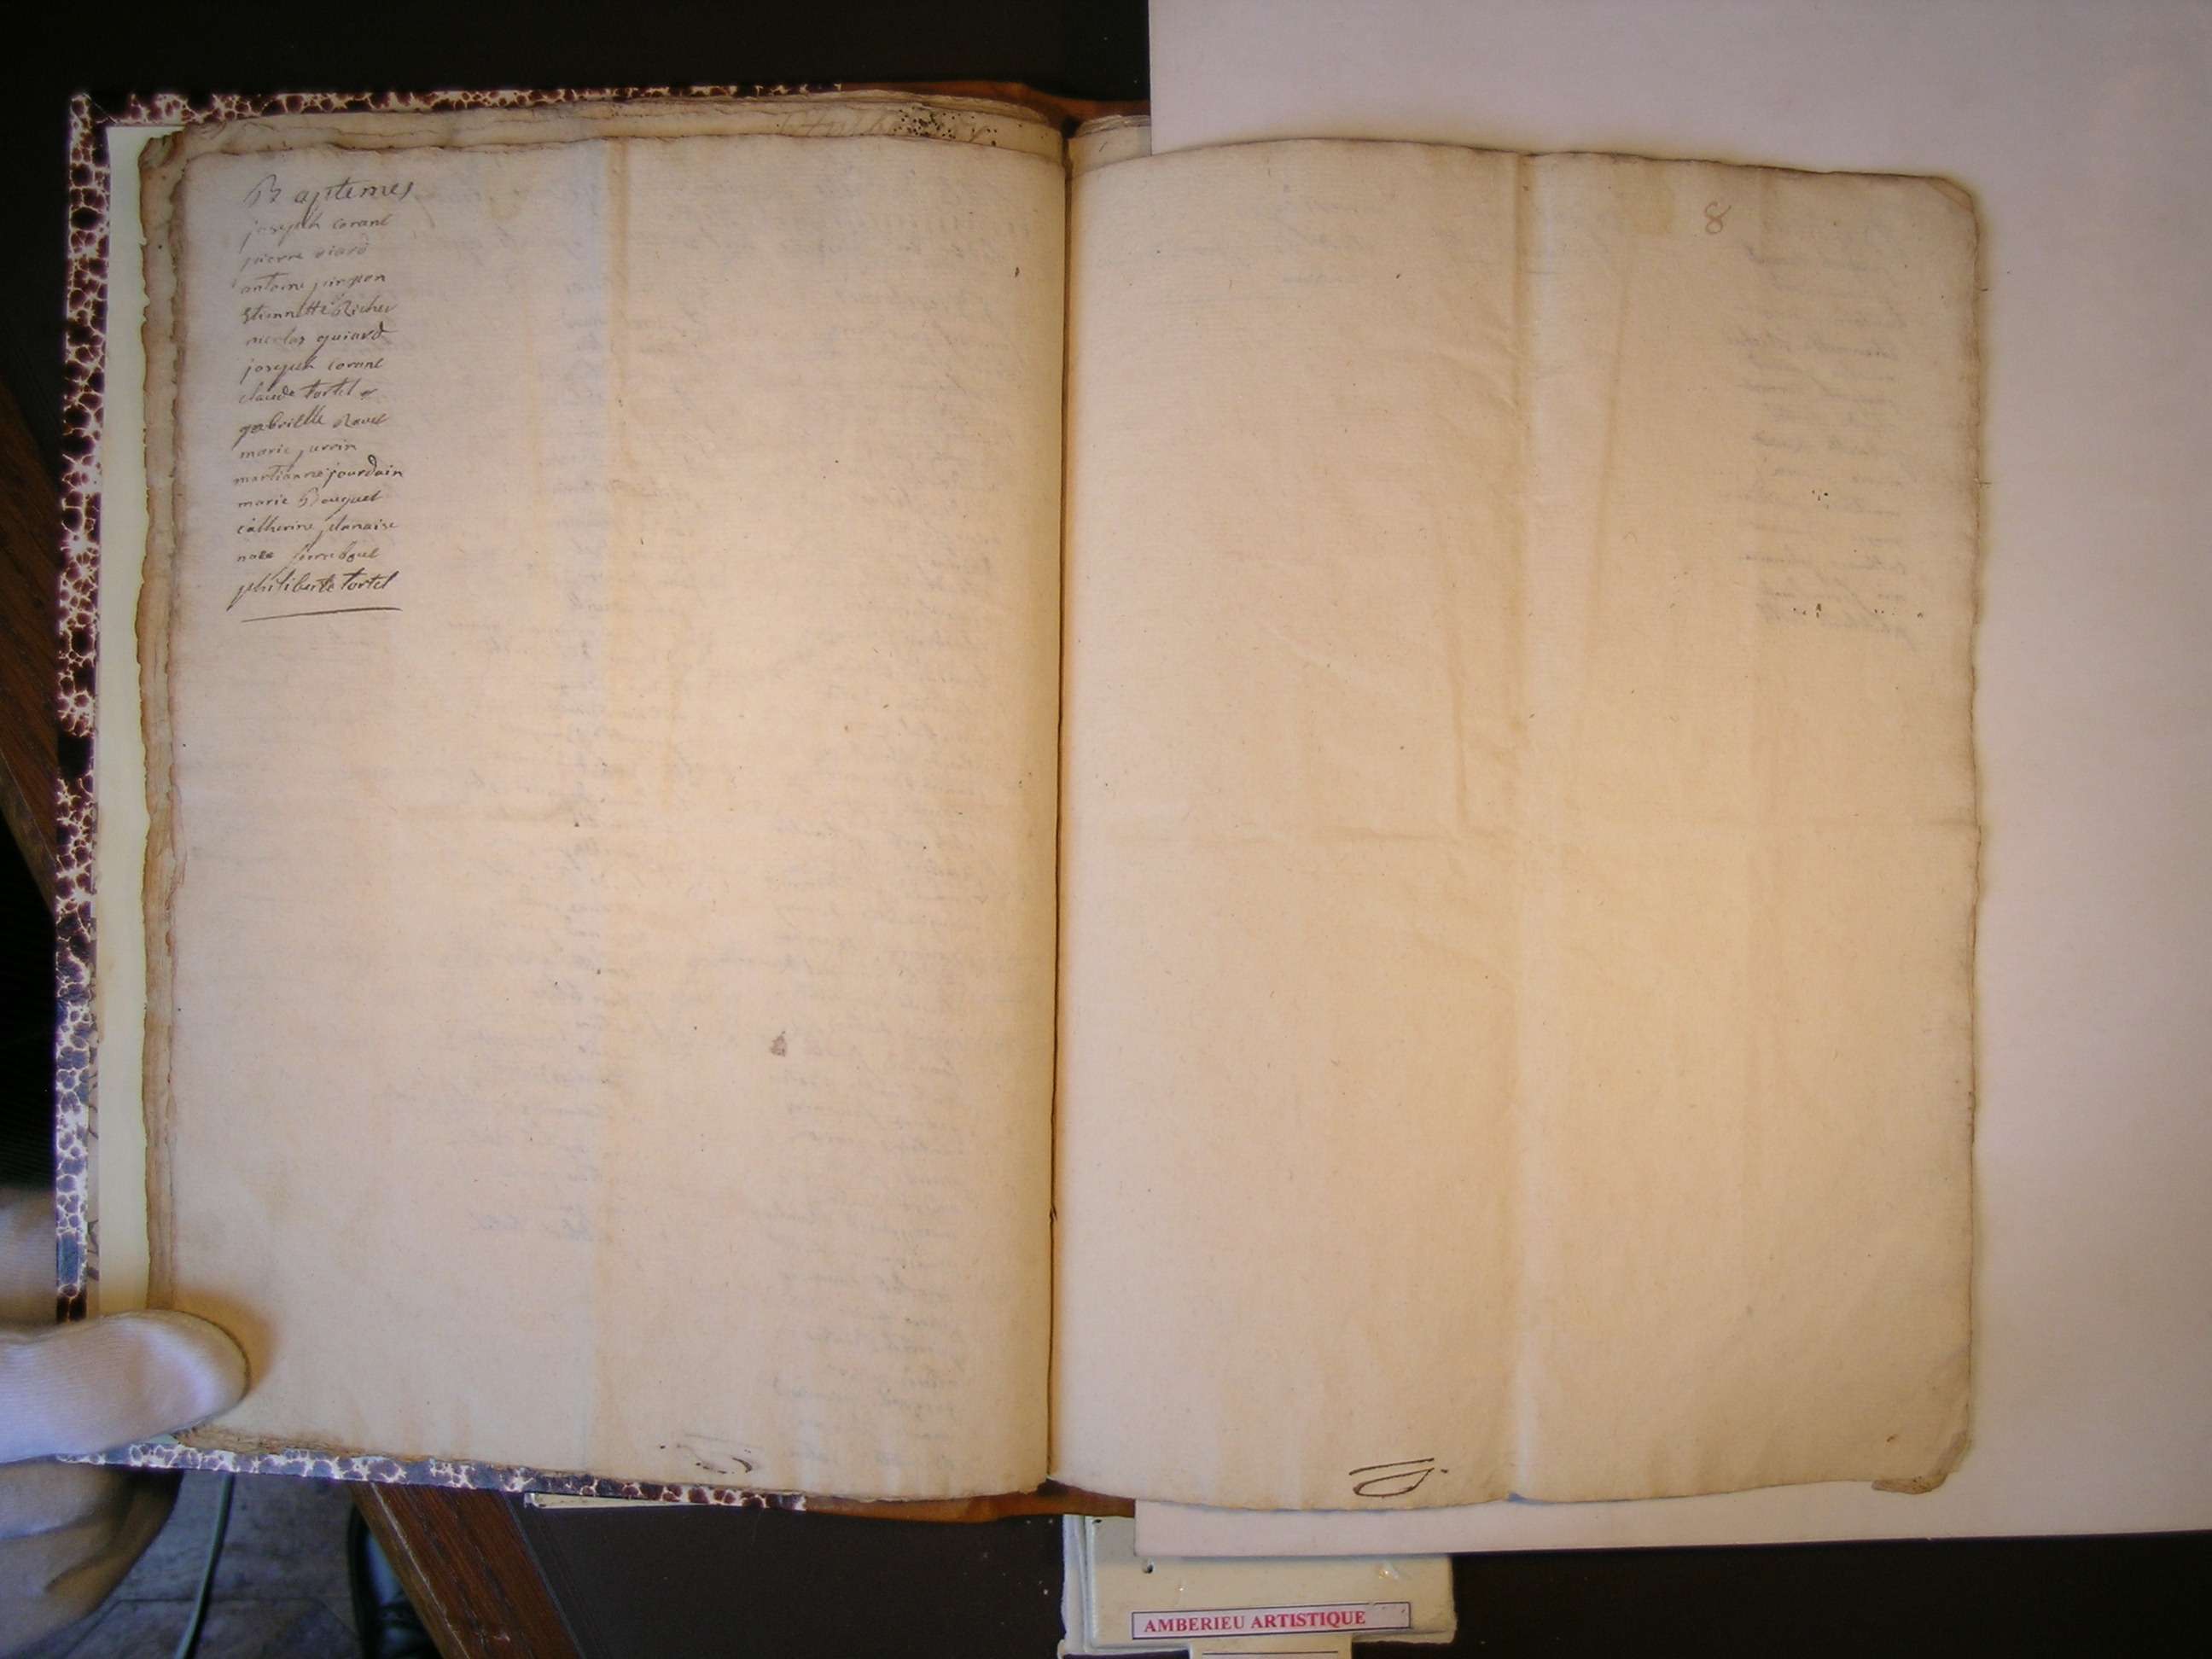 Baptemes
joseph corant
pierre viard
antoine pingon
Etiennette Richer
nicolas guiard
joseph corant
claude tortel
gabrielle Ravet
marie perrin
jourdain
marie Bouquet
catherine
philiberte tortel
8
AMBERIEU ARTISTIQUE